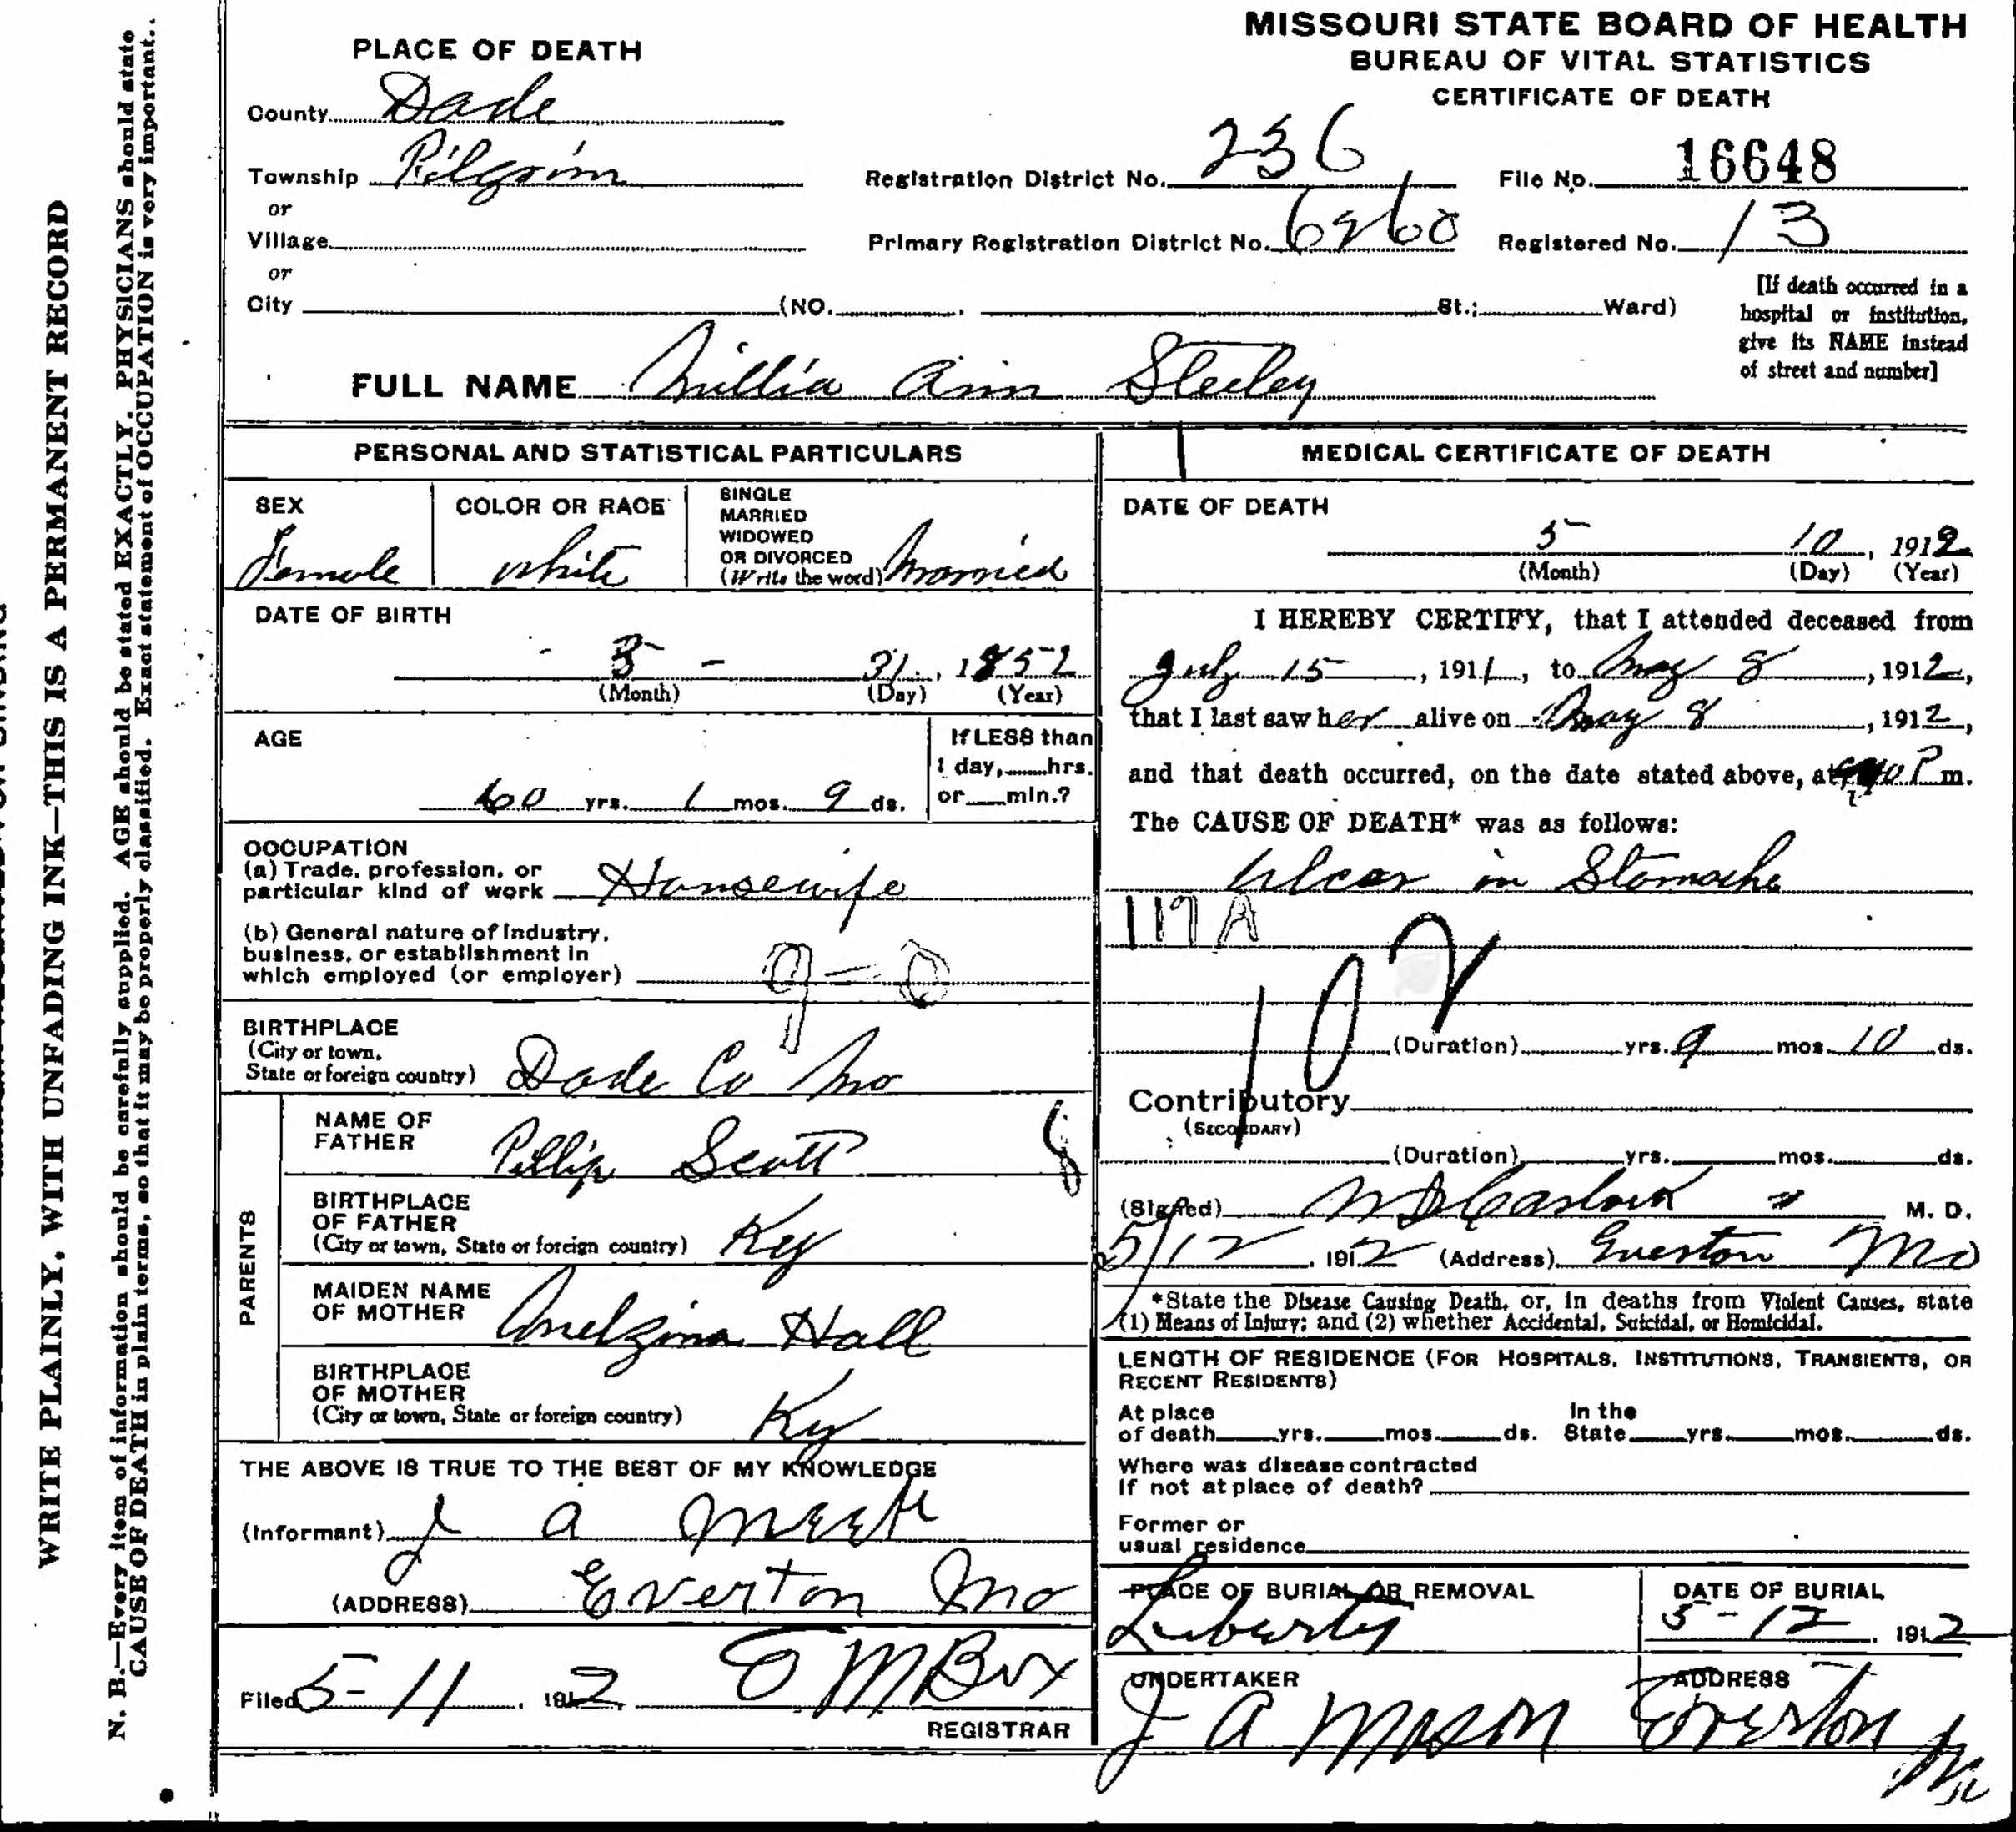 WRITE PLAINLY, WITH UNFADING INK—THIS IS A PERMANENT RECORD
N. B.—Every item of information should be carefully supplied. AGE should be stated EXACTLY. PHYSICIANS should state
CAUSE OF DEATH in plain terms, so that it may be properly classified. Exact statement of OCCUPATION is very important.
MISSOURI STATE BOARD OF HEALTH
BUREAU OF VITAL STATISTICS
CERTIFICATE OF DEATH
PLACE OF DEATH
County Dade
Township Pilgrim
or
Village
or
City (NO. St.; Ward)
Registration District No. 236
File No. 16648
Primary Registration District No.
Registered No. 13
[If death occurred in a
hospital or institution,
give its NAME instead
of street and number]
FULL NAME Millia Ann Steeley
PERSONAL AND STATISTICAL PARTICULARS
SEX
Female
COLOR OR RACE
White
SINGLE
MARRIED
WIDOWED
OR DIVORCED
(Write the word) Married
DATE OF BIRTH
3 - 31, 1852
(Month) (Day) (Year)
AGE
60 yrs. 1 mos. 9 ds.
If LESS than
1 day, hrs.
or min.?
OCCUPATION
(a) Trade, profession, or
particular kind of work Housewife
(b) General nature of industry,
business, or establishment in
which employed (or employer)
9-0
BIRTHPLACE
(City or town,
State or foreign country) Dade Co Mo
PARENTS
NAME OF
FATHER Pillip Scott
8
BIRTHPLACE
OF FATHER
(City or town, State or foreign country) Ky
MAIDEN NAME
OF MOTHER Hall
BIRTHPLACE
OF MOTHER
(City or town, State or foreign country) Ky
THE ABOVE IS TRUE TO THE BEST OF MY KNOWLEDGE
(Informant) J A Meek
(ADDRESS) Everton Mo
Filed 5-11, 1912 O M Box
REGISTRAR
MEDICAL CERTIFICATE OF DEATH
DATE OF DEATH
5 10, 1912
(Month) (Day) (Year)
I HEREBY CERTIFY, that I attended deceased from
July 15, 1911, to May 8, 1912,
that I last saw her alive on May 8, 1912,
and that death occurred, on the date stated above, at P m.
The CAUSE OF DEATH* was as follows:
Ulcer in Stomache
117A
102
(Duration) yrs. 9 mos. 10 ds.
Contributory
(SECONDARY)
(Duration) yrs. mos. ds.
(Signed) M. D.
5/12, 1912 (Address) Everton Mo
*State the Disease Causing Death, or, in deaths from Violent Causes, state
(1) Means of Injury; and (2) whether Accidental, Suicidal, or Homicidal.
LENGTH OF RESIDENCE (FOR HOSPITALS, INSTITUTIONS, TRANSIENTS, OR
RECENT RESIDENTS)
At place
of death yrs. mos. ds.
In the
State yrs. mos. ds.
Where was disease contracted
if not at place of death?
Former or
usual residence
PLACE OF BURIAL OR REMOVAL
Liberty
DATE OF BURIAL
5-12 1912
UNDERTAKER
J A Mason
ADDRESS
Everton Mo